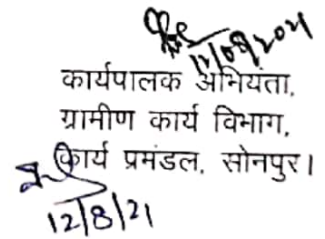 12/08/2021
कार्यपालक अभियंता,
ग्रामीण कार्य विभाग,
कार्य प्रमंडल, सोनपुर।
12/8/21